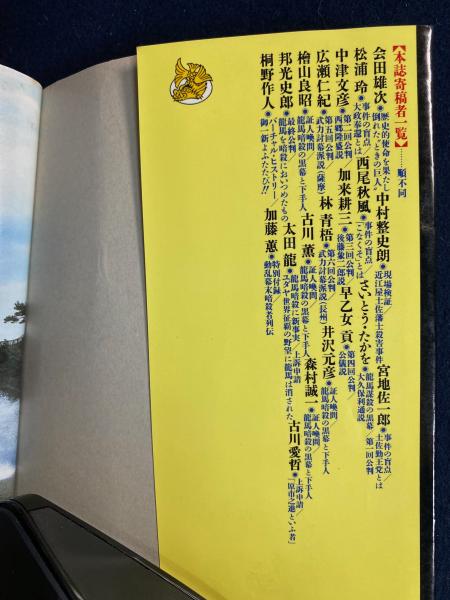 【本誌寄稿者一覧】……順不同
会田雄次●歴史的使命を果たし/倒れた"ときの巨人" 中村整史朗●現場検証/近江屋土佐藩士殺害事件 宮地佐一郎●事件の盲点/土佐勤王党とは
松浦 玲●事件の盲点/大政奉還とは 西尾秋風●事件の盲点/「こなくそ」とは さいとう・たかを●龍馬謀殺の黒幕/第一回公判/大久保利通説
中津文彦●第二回公判/西郷隆盛説 加来耕三●第三回公判/後藤象二郎説 早乙女 貢●第四回公判/公儀説
広瀬仁紀●第五回公判/武力討幕派説(薩摩) 林 青梧●第六回公判/武力討幕派説(長州) 井沢元彦●証人喚問/龍馬暗殺の黒幕と下手人
檜山良昭●証人喚問/龍馬暗殺の黒幕と下手人 古川 薫●証人喚問/龍馬暗殺の黒幕と下手人 森村誠一●証人喚問/龍馬暗殺の黒幕と下手人
邦光史郎●最終公判/龍馬を暗殺においつめたもの 太田 龍●龍馬暗殺に新事実/上訴申請/ユダヤ世界征覇の野望に龍馬は消された 古川愛哲●上訴申請/「原市之進といふ者」
桐野作人●バーチャル・ヒストリー/御一新よふたたび!! 加藤 蕙●特別付録/動乱幕末暗殺者列伝